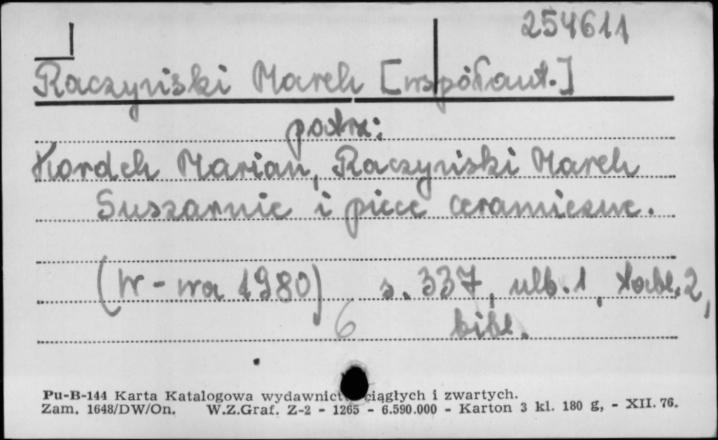 254611
Raczyński Marek [współaut.]
patrz:
Kordek Marian, Raczyński Marek
Suszarnie i piece ceramiczne.
(W-wa 1980) s. 337, nlb. 1, tabl. 2,
6 bibl.
Pu-B-144 Karta Katalogowa wydawnictw ciągłych i zwartych.
Zam. 1648/DW/On. W.Z.Graf. Z-2 - 1265 - 6.590.000 - Karton 3 kl. 180 g, - XII. 76.